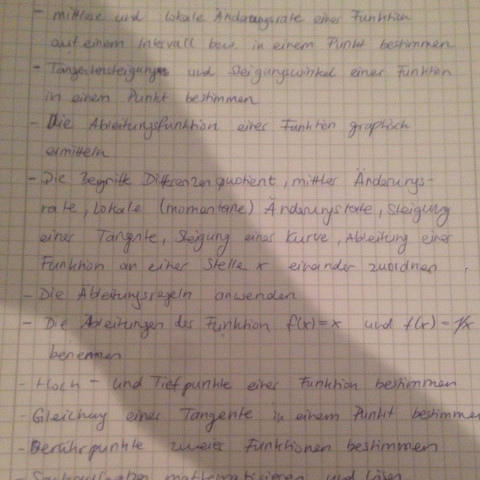 - mittlere und lokale Änderungsrate einer Funktion
auf einem Intervall bzw. in einem Punkt bestimmen
- Tangentensteigung und Steigungswinkel einer Funktion
in einem Punkt bestimmen
- Die Ableitungsfunktion einer Funktion graphisch
ermitteln
- Die Begriffe Differenzenquotient, mittlere Änderungs-
rate, lokale (momentane) Änderungsrate, Steigung
einer Tangente, Steigung einer Kurve, Ableitung einer
Funktion an einer Stelle x einander zuordnen.
- Die Ableitungsregeln anwenden
- Die Ableitungen der Funktion f(x)=x und f(x)=1/x
benennen
- Hoch- und Tiefpunkte einer Funktion bestimmen
- Gleichung einer Tangente in einem Punkt bestimmen
- Berührpunkte zweier Funktionen bestimmen
- Sachaufgaben mathematisieren und lösen